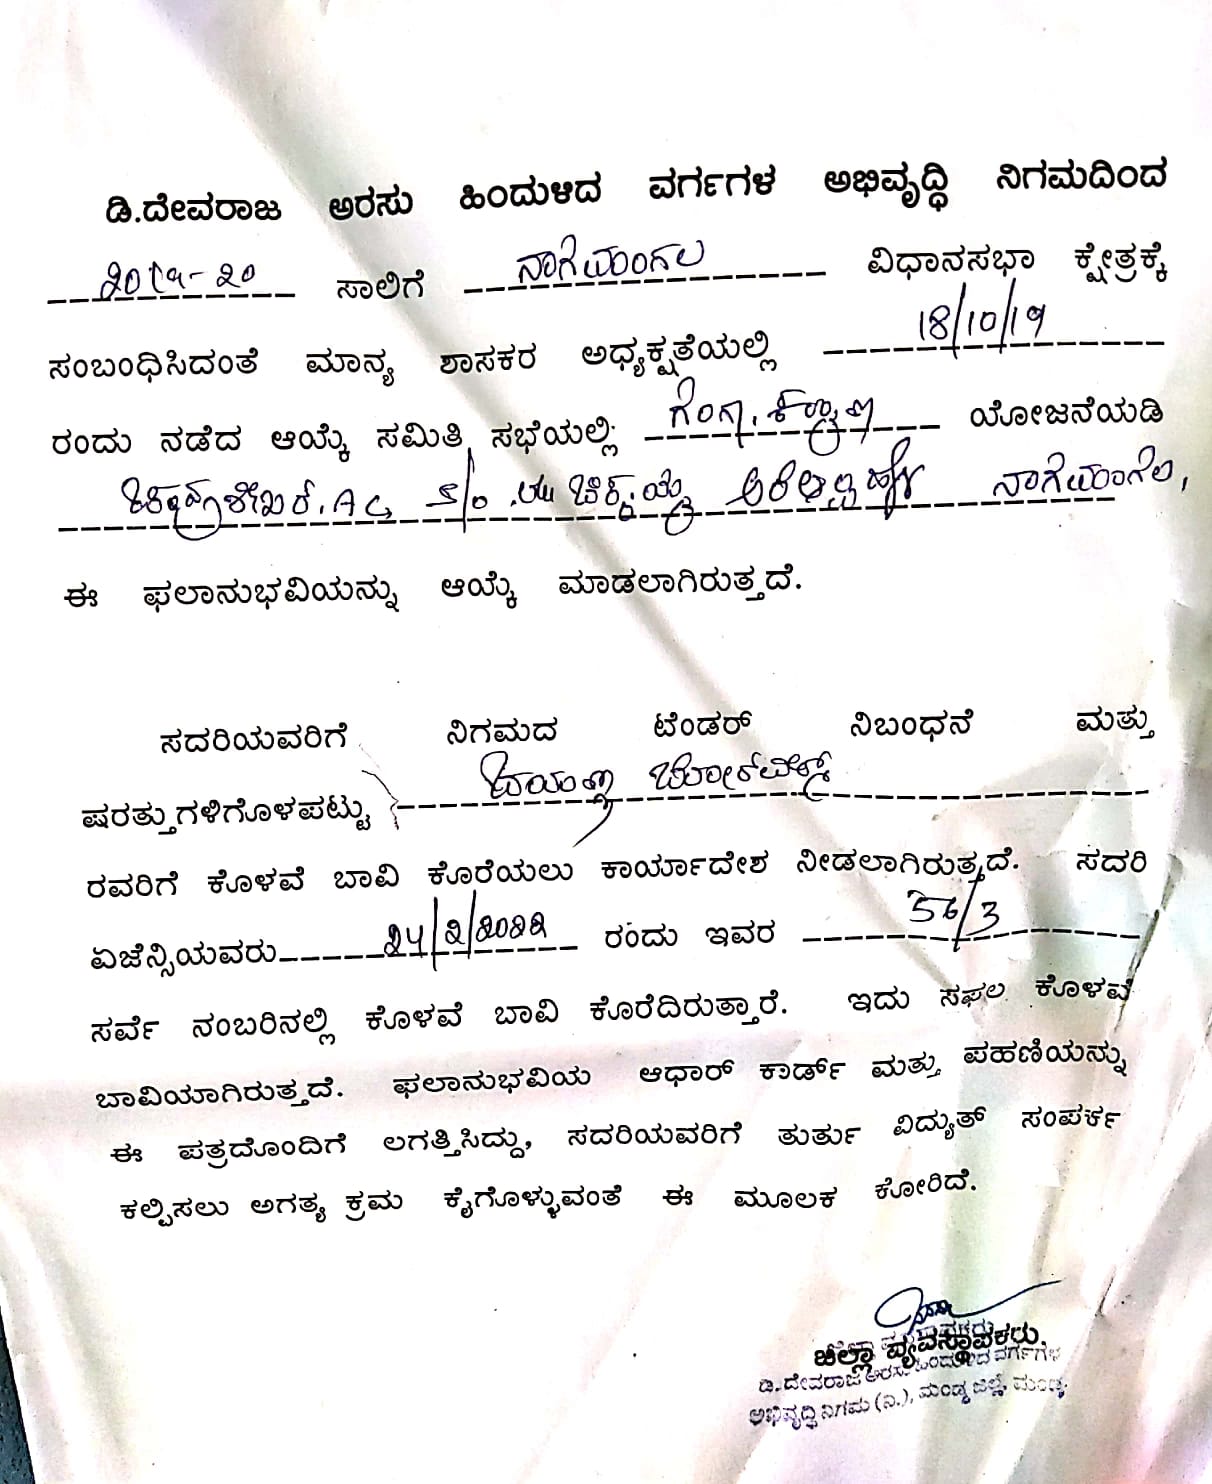 ಡಿ.ದೇವರಾಜ ಅರಸು ಹಿಂದುಳಿದ ವರ್ಗಗಳ ಅಭಿವೃದ್ಧಿ ನಿಗಮದಿಂದ
2019-20 ಸಾಲಿಗೆ ನಾಗಮಂಗಲ ವಿಧಾನಸಭಾ ಕ್ಷೇತ್ರಕ್ಕೆ
ಸಂಬಂಧಿಸಿದಂತೆ ಮಾನ್ಯ ಶಾಸಕರ ಅಧ್ಯಕ್ಷತೆಯಲ್ಲಿ 18/10/19
ರಂದು ನಡೆದ ಆಯ್ಕೆ ಸಮಿತಿ ಸಭೆಯಲ್ಲಿ ಗಂಗಾ ಕಲ್ಯಾಣ ಯೋಜನೆಯಡಿ
S/o ನಾಗಮಂಗಲ,
ಈ ಫಲಾನುಭವಿಯನ್ನು ಆಯ್ಕೆ ಮಾಡಲಾಗಿರುತ್ತದೆ.
ಸದರಿಯವರಿಗೆ ನಿಗಮದ ಟೆಂಡರ್ ನಿಬಂಧನೆ ಮತ್ತು
ಷರತ್ತುಗಳಿಗೊಳಪಟ್ಟು ಬೋರ್‌ವೆಲ್ಸ್
ರವರಿಗೆ ಕೊಳವೆ ಬಾವಿ ಕೊರೆಯಲು ಕಾರ್ಯಾದೇಶ ನೀಡಲಾಗಿರುತ್ತದೆ. ಸದರಿ
ಏಜೆನ್ಸಿಯವರು 24/2/2022 ರಂದು ಇವರ 56/3
ಸರ್ವೆ ನಂಬರಿನಲ್ಲಿ ಕೊಳವೆ ಬಾವಿ ಕೊರೆದಿರುತ್ತಾರೆ. ಇದು ಸಫಲ ಕೊಳವೆ
ಬಾವಿಯಾಗಿರುತ್ತದೆ. ಫಲಾನುಭವಿಯ ಆಧಾರ್ ಕಾರ್ಡ್ ಮತ್ತು ಪಹಣಿಯನ್ನು
ಈ ಪತ್ರದೊಂದಿಗೆ ಲಗತ್ತಿಸಿದ್ದು, ಸದರಿಯವರಿಗೆ ತುರ್ತು ವಿದ್ಯುತ್ ಸಂಪರ್ಕ
ಕಲ್ಪಿಸಲು ಅಗತ್ಯ ಕ್ರಮ ಕೈಗೊಳ್ಳುವಂತೆ ಈ ಮೂಲಕ ಕೋರಿದೆ.
ಜಿಲ್ಲಾ ವ್ಯವಸ್ಥಾಪಕರು,
ಡಿ.ದೇವರಾಜ ಅರಸು ಹಿಂದುಳಿದ ವರ್ಗಗಳ
ಅಭಿವೃದ್ಧಿ ನಿಗಮ (ನಿ.), ಮಂಡ್ಯ ಜಿಲ್ಲೆ, ಮಂಡ್ಯ